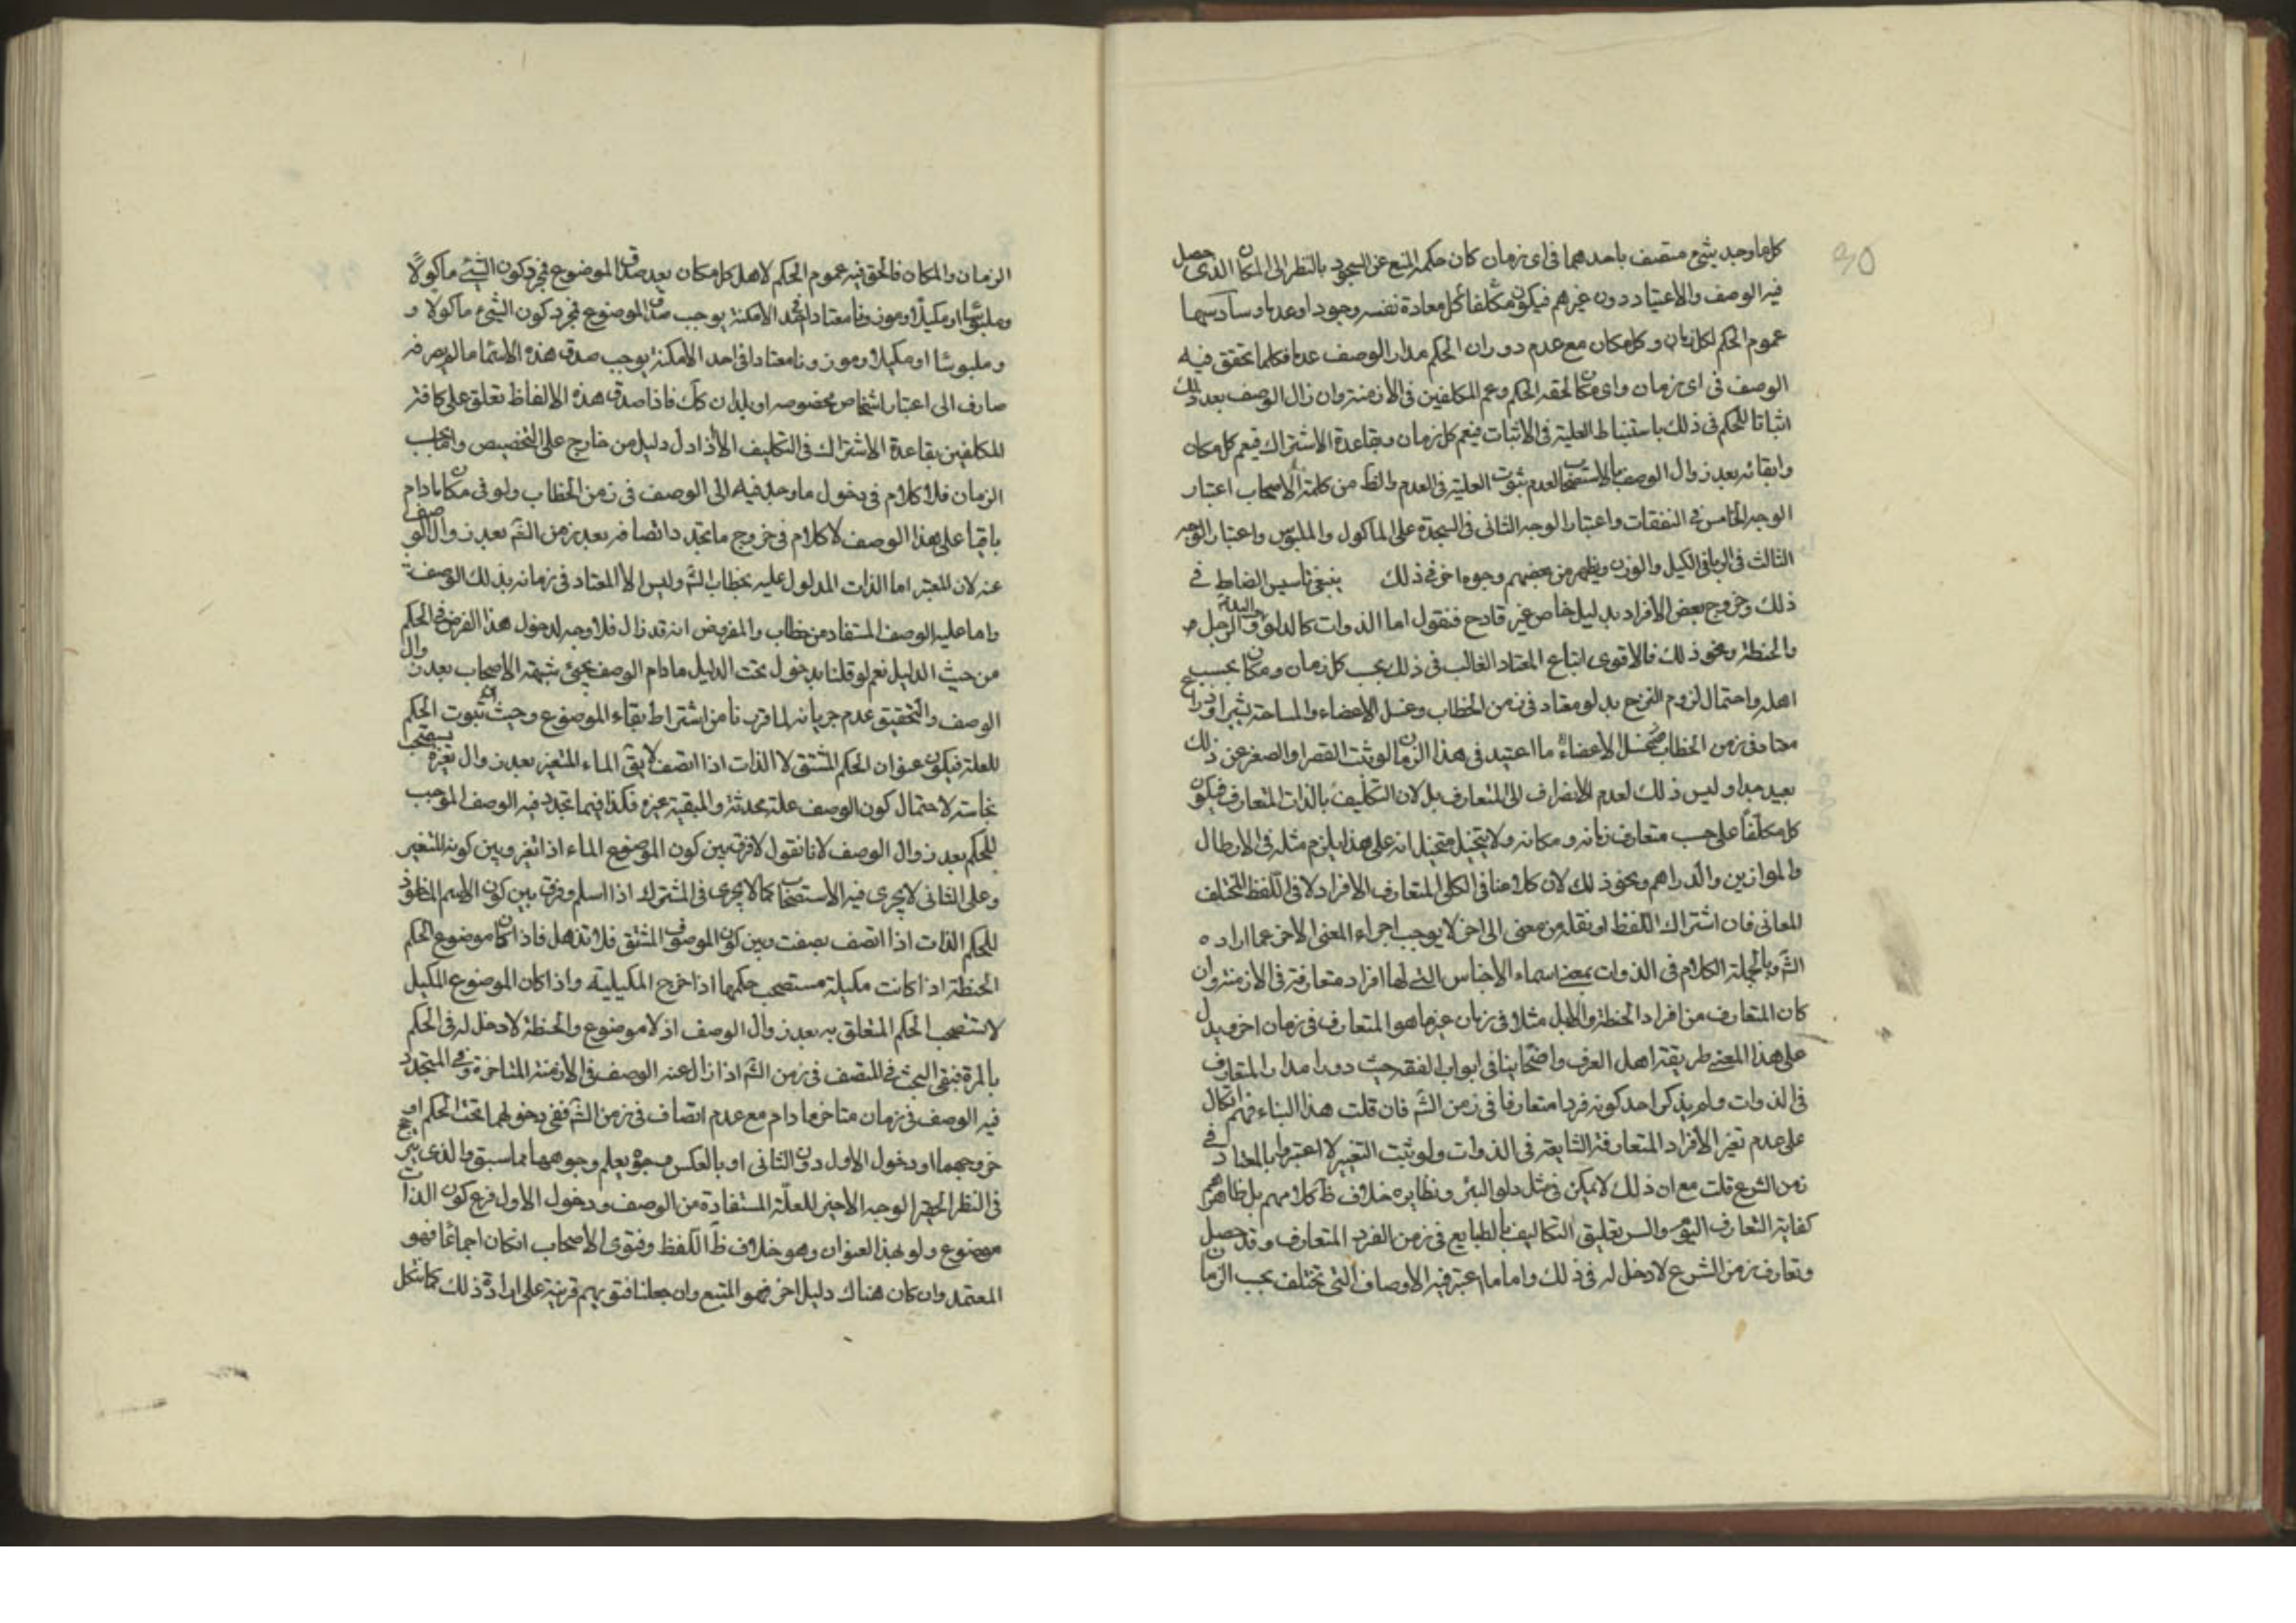 كل ما وجد شيء متصف باحدهما في اى زمان كان حكمه المنع عن السجود بالنظر الى المكان الذى حصل
فيه الوصف والاعتياد دون غيرهم فيكون مكلفا كل معادة نفسه وجودا وعدما وسادسها
عموم الحكم لكل زمان وكل مكان مع عدم دوران الحكم مدار الوصف عدما فكلما تحقق فيه
الوصف في اى زمان واى مكان لحقه الحكم وعم المكلفين في الازمنة وان زال الوصف بعد ذلك
اثباتا للحكم في ذلك باستنباط العلية في الاثبات فيعم كل زمان وبقاعدة الاشتراك فيعم كل مكان
وابقائه بعد زوال الوصف بالاستصحاب لعدم ثبوت العلية في العدم والظ من كلمة الاصحاب اعتبار
الوجه الخامس في النفقات واعتبار الوجه الثانى في السجدة على الماكول والملبوس واعتبار الوجه
الثالث في الربا في الكيل والوزن ويظهر من بعضهم وجوه اخر في ذلك ينبغى تاسيس الضابط في
ذلك وخروج بعض الافراد بدليل خاص غير قادح فنقول اما الذوات كالدلو والرجل
والحنطة ونحو ذلك فالاقوى اتباع المعتاد الغالب في ذلك بحسب كل زمان ومكان بحسب
اهله واحتمال لزوم النزح بدلو معتاد في زمن الخطاب وغسل الاعضاء والمساحة بشبر او ذراع
معتاد في زمن الخطاب غسل الاعضاء ما اعتيد في هذا الزمان لو ثبت القصر او الصغر عن ذلك
بعيد جدا وليس ذلك لعدم الانصراف الى المتعارف بل لان التكليف بالذات المتعارف فيكون
كل مكلفا على حسب متعارف زمانه ومكانه ولا يتخيل متخيل انه على هذا يلزم مثله في الارطال
والموازين والدراهم ونحو ذلك لان كلامنا في الكلى المتعارف الافراد لا في اللفظ المختلف
المعانى فان اشتراك اللفظ او نقله من معنى الى اخر لا يوجب اجراء المعنى الاخر عما اراده
الش وبالجملة الكلام في الذوات بمعنى اسماء الاجناس التى لها افراد متعارفة في الازمنة وان
كان المتعارف من افراد الحنطة والطبل مثلا في زمان غير ما هو المتعارف في زمان اخر ويدل
على هذا المعنى طريقة اهل العرف واصحابنا في ابواب الفقه حيث داروا مدار المتعارف
في الذوات ولم يذكر احد كونه فردا متعارفا في زمن الش فان قلت هذا البناء منهم اتكال
على عدم تغير الافراد المتعارفة الشايعة في الذوات ولو ثبت التغيير لاعتبروا بالمعتاد في
زمن الشرع قلت مع ان ذلك لا يمكن في مثل دلو البئر ونظايره خلاف ظ كلامهم بل ظاهرهم
كفاية التعارف اليوم والسر تعليق التكاليف بالطبايع في زمن الفرد المتعارف وقد حصل
وتعارف زمن الشرع لا دخل له في ذلك واما ما اعتبر فيه الاوصاف التى تختلف بحسب الزمان
الزمان والمكان فالحق فيه عموم الحكم لاهل كل مكان بعد صدق الموضوع فمجرد كون الشيء ماكولًا
وملبوسًا او مكيلًا او موزونا معتادا في احد الامكنة يوجب صدق الموضوع فمجرد كون الشيء ماكولا و
وملبوسًا او مكيلا وموزونا معتادا في احد الامكنة يوجب صدق هذه الاسماء ما لم يصرفه
صارف الى اعتبار اشخاص مخصوصه او بلدان كك فاذا صدق هذه الالفاظ تعلق على كافة
المكلفين بقاعدة الاشتراك في التكليف الا اذا دل دليل من خارج على التخصيص واما بحسب
الزمان فلا كلام في دخول ما وجد فيه الى الوصف في زمن الخطاب ولو في مكان ما دام
باقيا على هذا الوصف لا كلام في خروج ما تجدد اتصافه بعد زمن الش بعد زوال الوصف
عنه لان المعتبر اما الذات المدلول عليه بخطاب الش وليس الا المعتاد في زمانه بذلك الوصف
واما علية الوصف المستفاد من خطاب والمفروض انه قد زال فلا وجه لدخول هذا الفرض في الحكم
من حيث الدليل نعم لو قلنا بدخول تحت الدليل ما دام الوصف يجئ شبهة الاصحاب بعد زوال
الوصف والتحقيق عدم جريانه لما قررنا من اشتراط بقاء الموضوع وحيث ثبوت الحكم
للعلة فيكون عنوان الحكم المشتق لا الذات اذا اتصف لا يق الماء المتغير بعد زوال تغيره يستصحب
نجاسته لاحتمال كون الوصف علة محدثة والمبقية غيره فكذا فيما تجدد فيه الوصف الموجب
للحكم بعد زوال الوصف لانا نقول لا فرق بين كون الموضوع الماء اذا تغير وبين كونه المتغير
وعلى الثانى لا يجرى فيه الاستصحاب كما لا يجرى في المشترك اذا اسلم وفرق بين كون الاسم الماخوذ
للحكم الذات اذا اتصف بصفت وبين كون الموصوف المشتق فلا تذهل فاذا كان موضوع الحكم
الحنطة اذا كانت مكيلة مستصحب حكمها اذا خرج المكيلية واذا كان الموضوع المكيل
لا نستصحب الحكم المتعلق به بعد زوال الوصف اذ لا موضوع والحنطة لا دخل له في الحكم
بالمرة فبقى البحث في المتصف في زمن الش اذا زال عنه الوصف في الازمنة المتاخرة وفى المتجدد
فيه الوصف في زمان متاخر ما دام مع عدم اتصاف في زمن الش ففى دخولهما تحت الحكم او
خروجهما او دخول الاول دون الثانى او بالعكس وجوه يعلم وجوهها مما سبق والذى يترجح
في النظر الحقير الوجه الاخير للعلة المستفادة من الوصف ودخول الاول فرع كون الذات
موضوع ولو لهذا العنوان وهو خلاف ظ اللفظ وفتوى الاصحاب انكان اجماعًا فهو
المعتمد وان كان هناك دليل اخر فهو المتبع وان جعلنا فتويهم قرينة على ارادة ذلك كما شكل